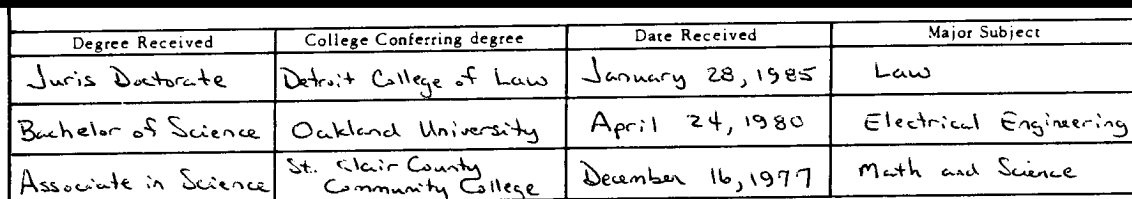 Degree Received College Conferring degree Date Received Major Subject
Juris Doctorate Detroit College of Law January 28, 1985 Law
Bachelor of Science Oakland University April 24, 1980 Electrical Engineering
Associate in Science St. Clair County Community College December 16, 1977 Math and Science